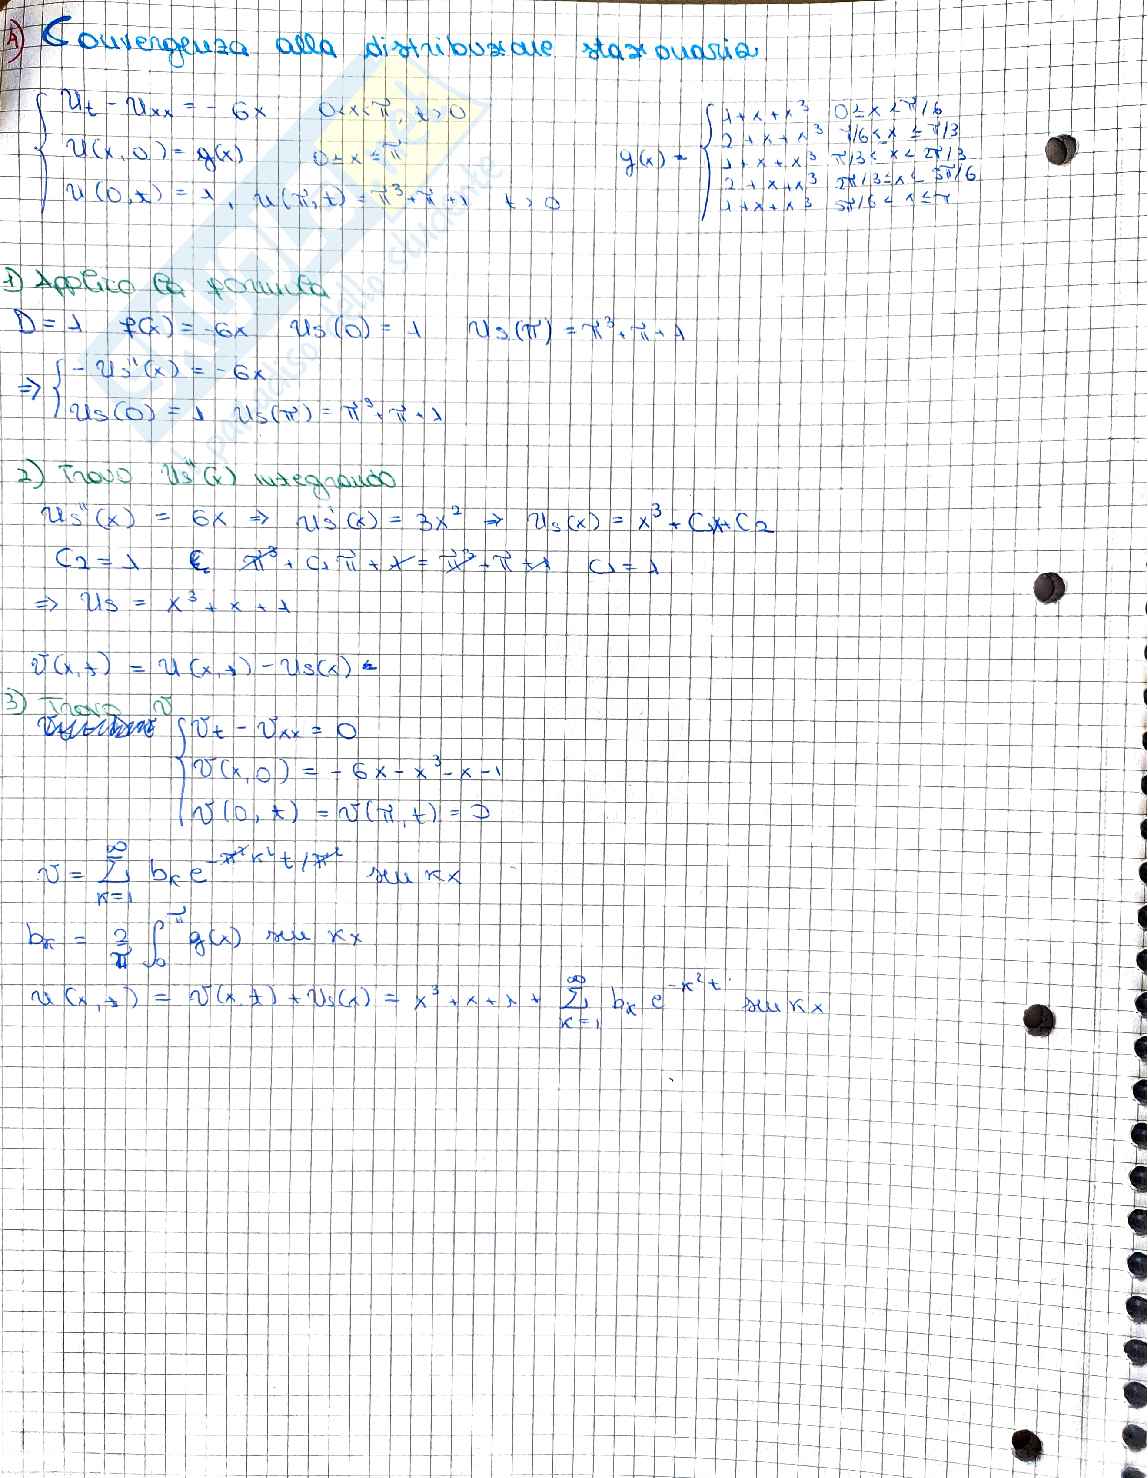 A) Convergenza alla distribuzione stazionaria
{ Ut - Uxx = - 6x   0<x<π, t>0
U(x,0) = g(x)   0≤x≤π
U(0,t) = 1, U(π,t) = π³+π+1   t>0
g(x) = { 1+x+x³   0≤x<π/6
2+x+x³   π/6≤x≤π/3
1+x+x³   π/3<x<2π/3
2+x+x³   2π/3≤x≤5π/6
1+x+x³   5π/6<x≤π
1) Applico la formula
D=1   f(x)=-6x   Us(0)=1   Us(π)=π³+π+1
⇒ { -Us''(x) = -6x
Us(0)=1   Us(π)=π³+π+1
2) Trovo Us''(x) integrando
Us''(x) = 6x ⇒ Us'(x) = 3x² ⇒ Us(x) = x³ + C1x + C2
C2=1   π³ + C1π + 1 = π³ + π + 1   C1=1
⇒ Us = x³ + x + 1
v(x,t) = u(x,t) - Us(x)
3) Trovo v
{ vt - vxx = 0
v(x,0) = - 6x - x³ - x - 1
v(0,t) = v(π,t) = 0
v = ∞Σk=1 bk e^-π²k²t/π² sin kx
bk = 2/π ∫0^π g(x) sin kx
u(x,t) = v(x,t) + Us(x) = x³ + x + 1 + ∞Σk=1 bk e^-k²t sin kx